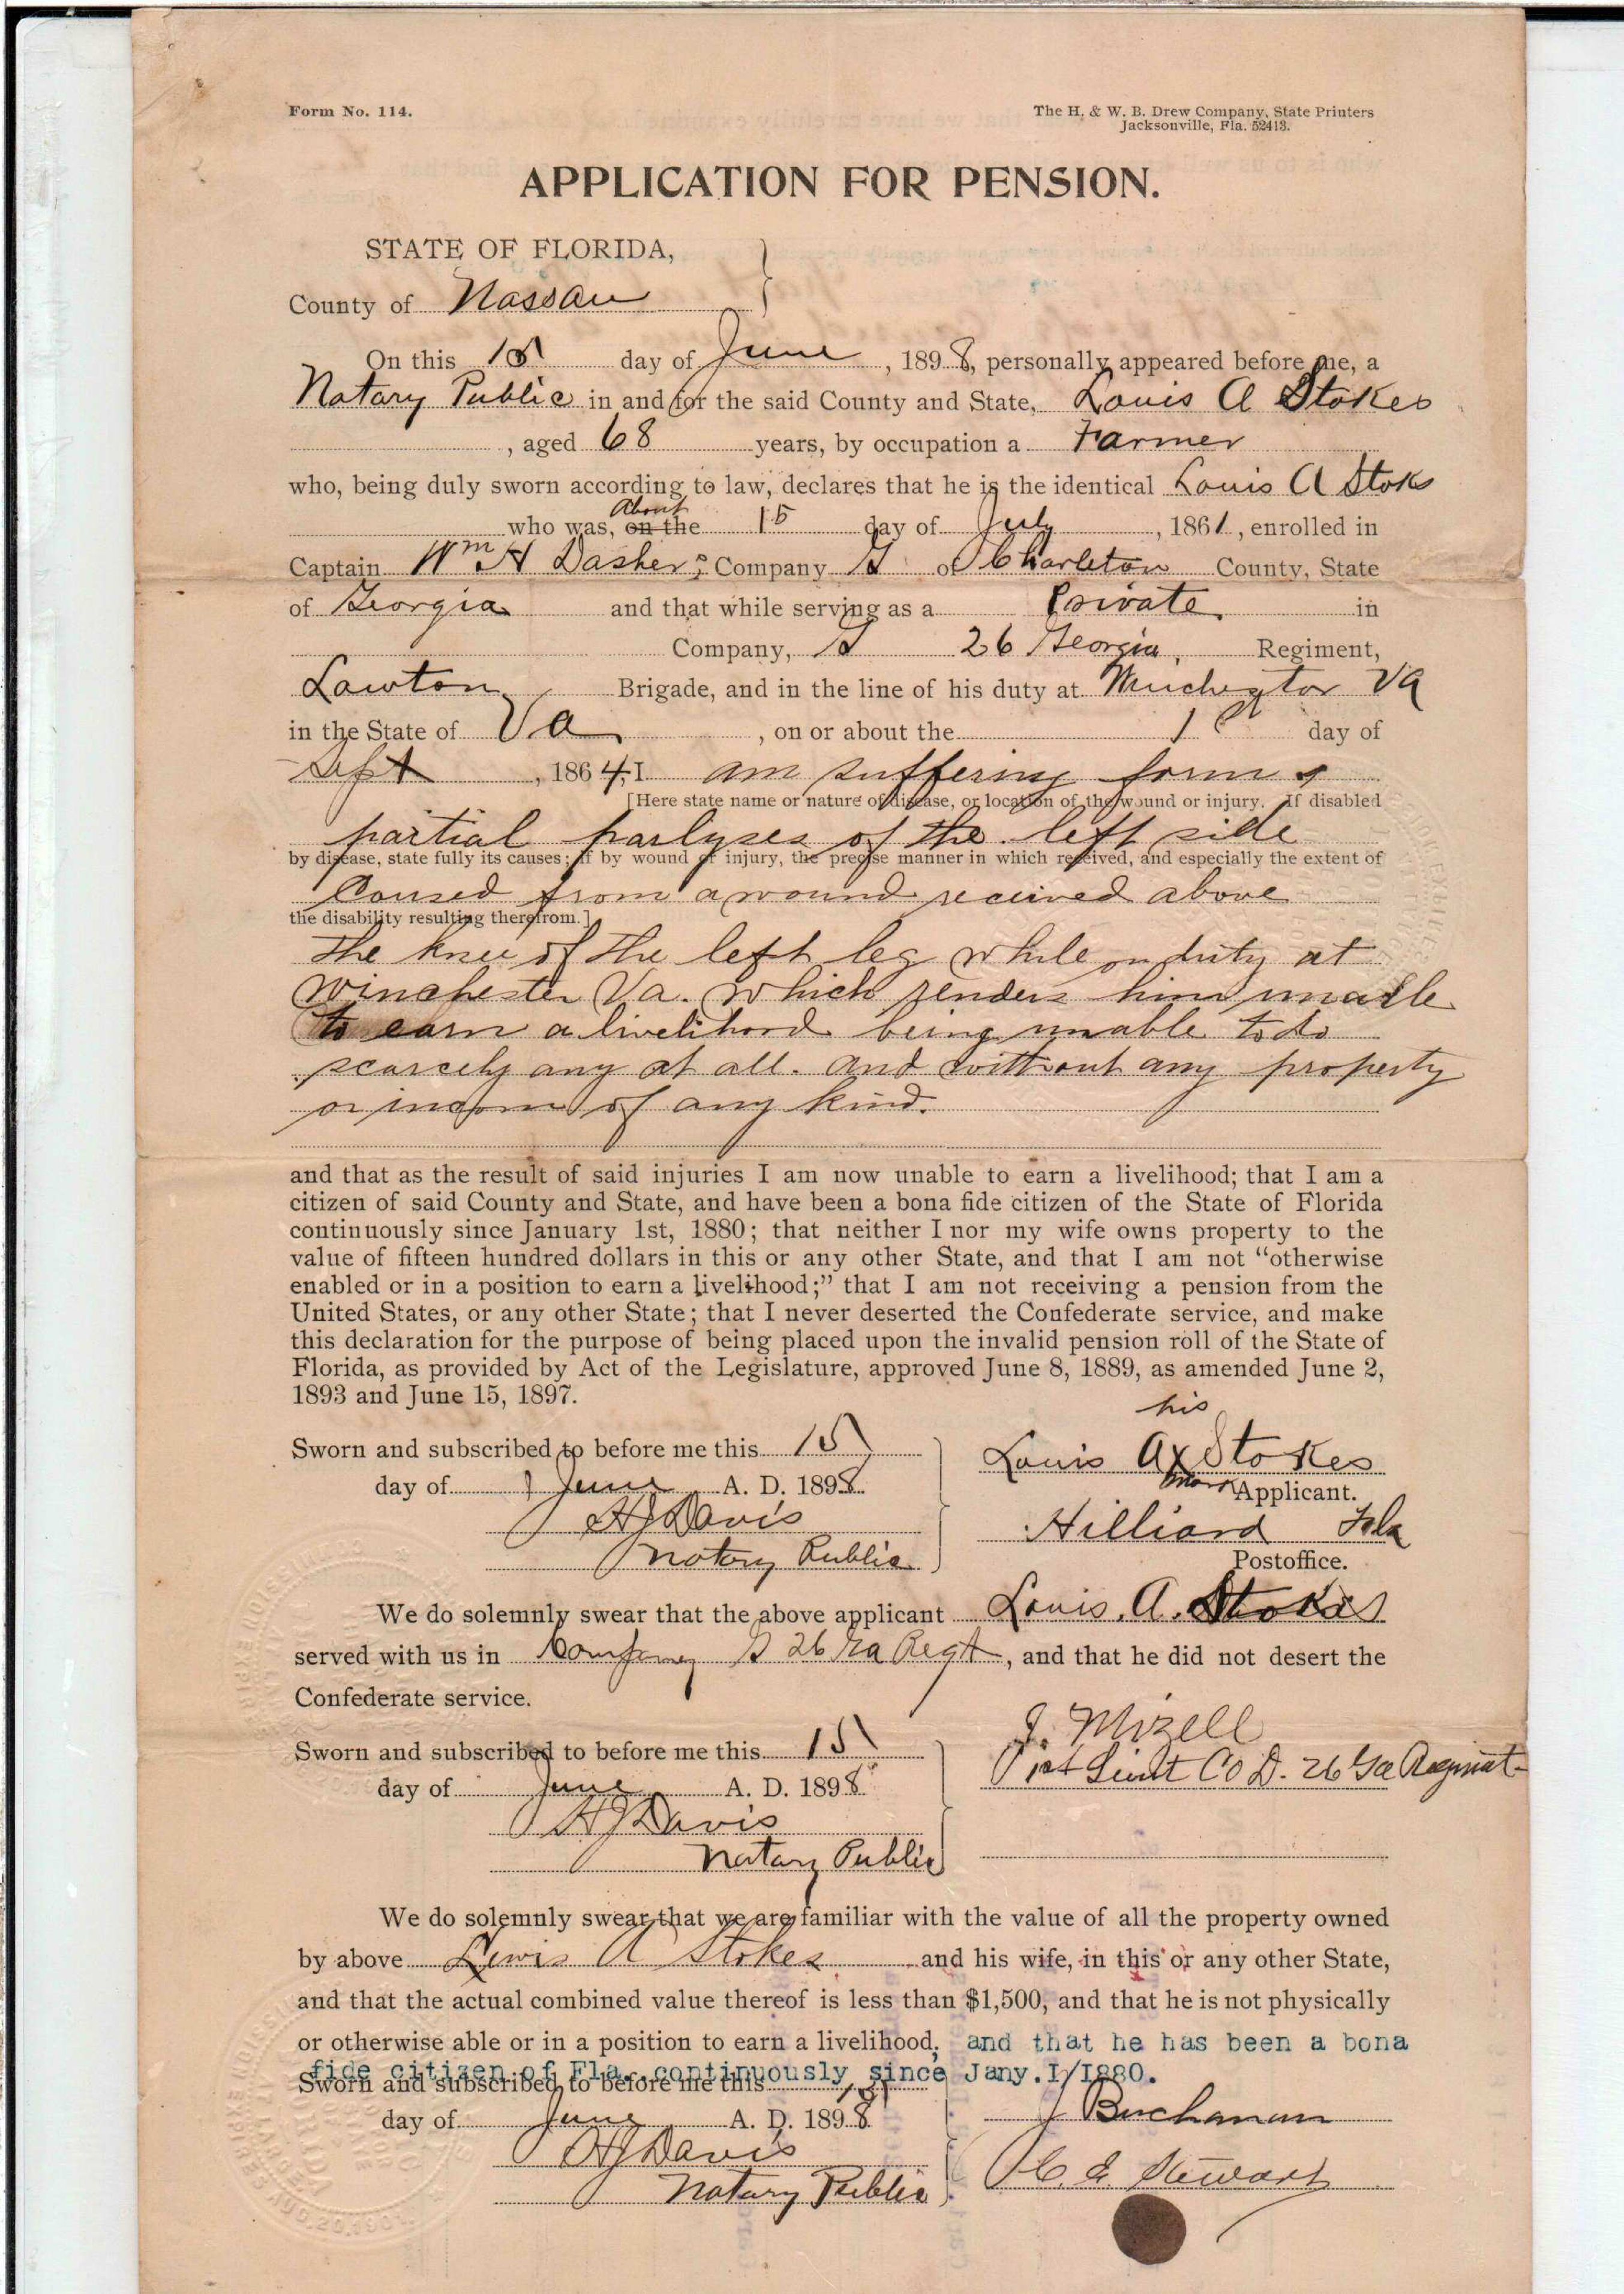 Form No. 114.
The H. & W. B. Drew Company, State Printers
Jacksonville, Fla. 52413.
APPLICATION FOR PENSION.
STATE OF FLORIDA,
County of Nassau
On this 15 day of June, 1898, personally appeared before me, a
Notary Public in and for the said County and State, Louis A Stokes
, aged 68 years, by occupation a Farmer
who, being duly sworn according to law, declares that he is the identical Louis A Stoks
About
who was, on the 15 day of July, 1861, enrolled in
Captain Wm H Dasher's Company G of Charleton County, State
of Georgia and that while serving as a Private in
Company, G 26 Georgia, Regiment,
Lawton Brigade, and in the line of his duty at Winchester Va
in the State of Va, on or about the 1st day of
Sept, 1864, I am suffering form a
[Here state name or nature of disease, or location of the wound or injury. If disabled
partial parlyses of the left side
by disease, state fully its causes; if by wound or injury, the precise manner in which received, and especially the extent of
Caused from a wound received above
the disability resulting therefrom.]
the knee of the left leg while on duty at
Winchester Va. which renders him unable
to earn a livelihood being unable to do
scarcely any at all. and without any property
or incom of any kind.
and that as the result of said injuries I am now unable to earn a livelihood; that I am a
citizen of said County and State, and have been a bona fide citizen of the State of Florida
continuously since January 1st, 1880; that neither I nor my wife owns property to the
value of fifteen hundred dollars in this or any other State, and that I am not "otherwise
enabled or in a position to earn a livelihood;" that I am not receiving a pension from the
United States, or any other State; that I never deserted the Confederate service, and make
this declaration for the purpose of being placed upon the invalid pension roll of the State of
Florida, as provided by Act of the Legislature, approved June 8, 1889, as amended June 2,
1893 and June 15, 1897.
his
Sworn and subscribed to before me this 15 Louis A x Stokes
mark Applicant.
day of June A. D. 1898.
H J Davis Hilliard Fla
Notary Public Postoffice.
We do solemnly swear that the above applicant Louis. A. Stokes
served with us in Company G 26 Ga Regt, and that he did not desert the
Confederate service.
J. Mizell
Sworn and subscribed to before me this 15
1st Lieut Co D. 26 Ga Regiment
day of June A. D. 1898
H J Davis
Notary Public
We do solemnly swear that we are familiar with the value of all the property owned
by above Lewis A Stokes and his wife, in this or any other State,
and that the actual combined value thereof is less than $1,500, and that he is not physically
or otherwise able or in a position to earn a livelihood, and that he has been a bona
fide citizen of Fla. continuously since Jany.I/I880.
Sworn and subscribed to before me this 15
day of June A. D. 1898 J Buchanan
H J Davis
C E Stewart
Notary Public